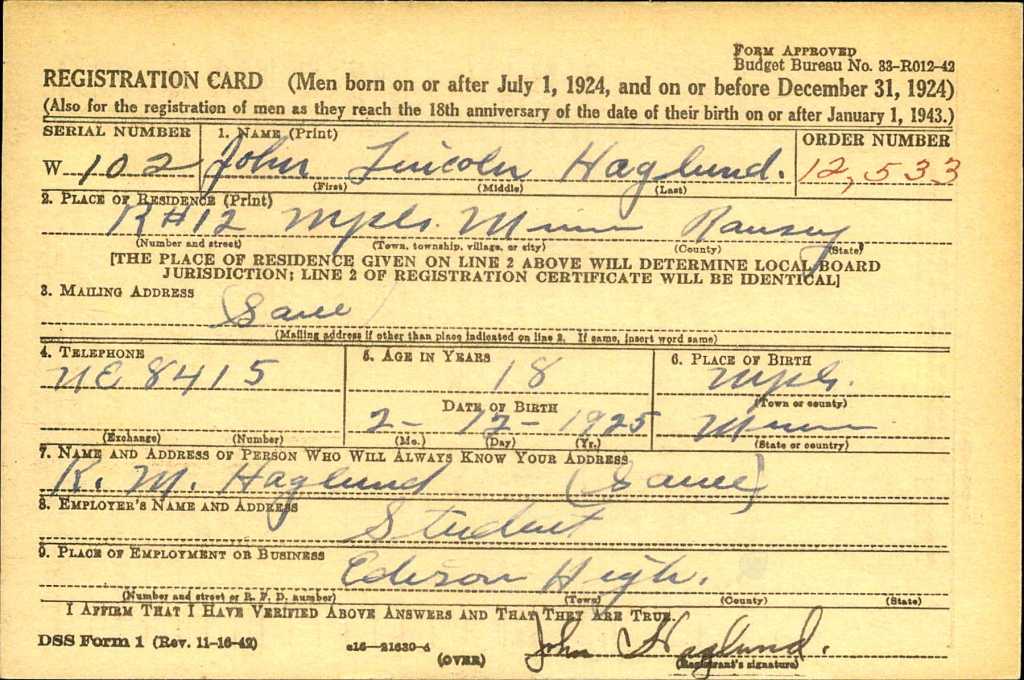 FORM APPROVED
Budget Bureau No. 33-R012-42
REGISTRATION CARD (Men born on or after July 1, 1924, and on or before December 31, 1924)
(Also for the registration of men as they reach the 18th anniversary of the date of their birth on or after January 1, 1943.)
SERIAL NUMBER 1. NAME (Print) ORDER NUMBER
W 102 John Lincoln Haglund. 12,533
(First) (Middle) (Last)
2. PLACE OF RESIDENCE (Print)
R#12 Mpls. Minn Ramsey
(Number and street) (Town, township, village, or city) (County) (State)
[THE PLACE OF RESIDENCE GIVEN ON LINE 2 ABOVE WILL DETERMINE LOCAL BOARD
JURISDICTION; LINE 2 OF REGISTRATION CERTIFICATE WILL BE IDENTICAL]
3. MAILING ADDRESS
(Same)
(Mailing address if other than place indicated on line 2. If same, insert word same)
4. TELEPHONE 5. AGE IN YEARS 6. PLACE OF BIRTH
NE 8415 18 Mpls.
DATE OF BIRTH (Town or county)
2- 12- 1925 Minn
(Exchange) (Number) (Mo.) (Day) (Yr.) (State or country)
7. NAME AND ADDRESS OF PERSON WHO WILL ALWAYS KNOW YOUR ADDRESS
R. M. Haglund (Same)
8. EMPLOYER'S NAME AND ADDRESS
Student
9. PLACE OF EMPLOYMENT OR BUSINESS
Edison High.
(Number and street or R. F. D. number) (Town) (County) (State)
I AFFIRM THAT I HAVE VERIFIED ABOVE ANSWERS AND THAT THEY ARE TRUE.
DSS Form 1 (Rev. 11-16-42) 16—21630-4 (OVER) John Haglund.
(Registrant's signature)